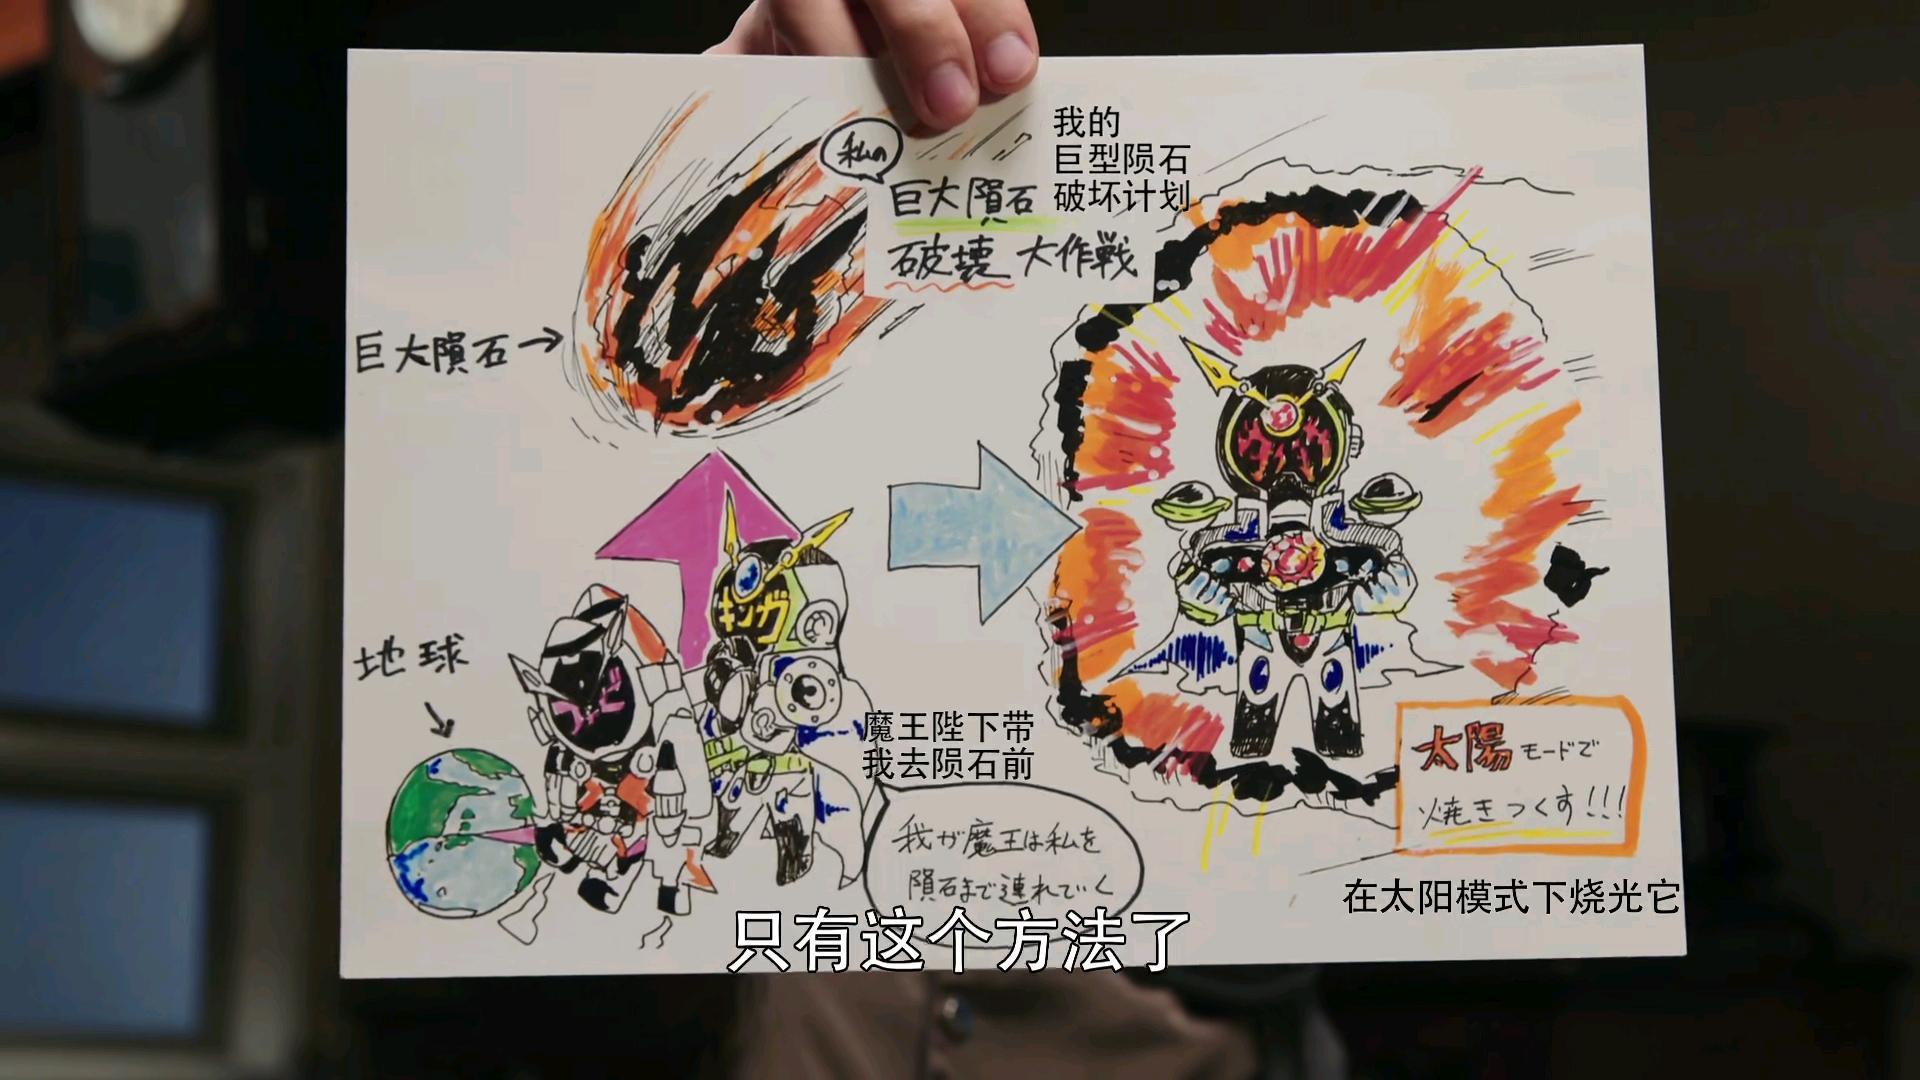 私の
巨大隕石
破壊大作戦
我的
巨型陨石
破坏计划
巨大隕石→
キンガ
地球
魔王陛下带
我去陨石前
我が魔王は私を
隕石まで連れていく
太陽モードで
焼きつくす!!!
在太阳模式下烧光它
只有这个方法了